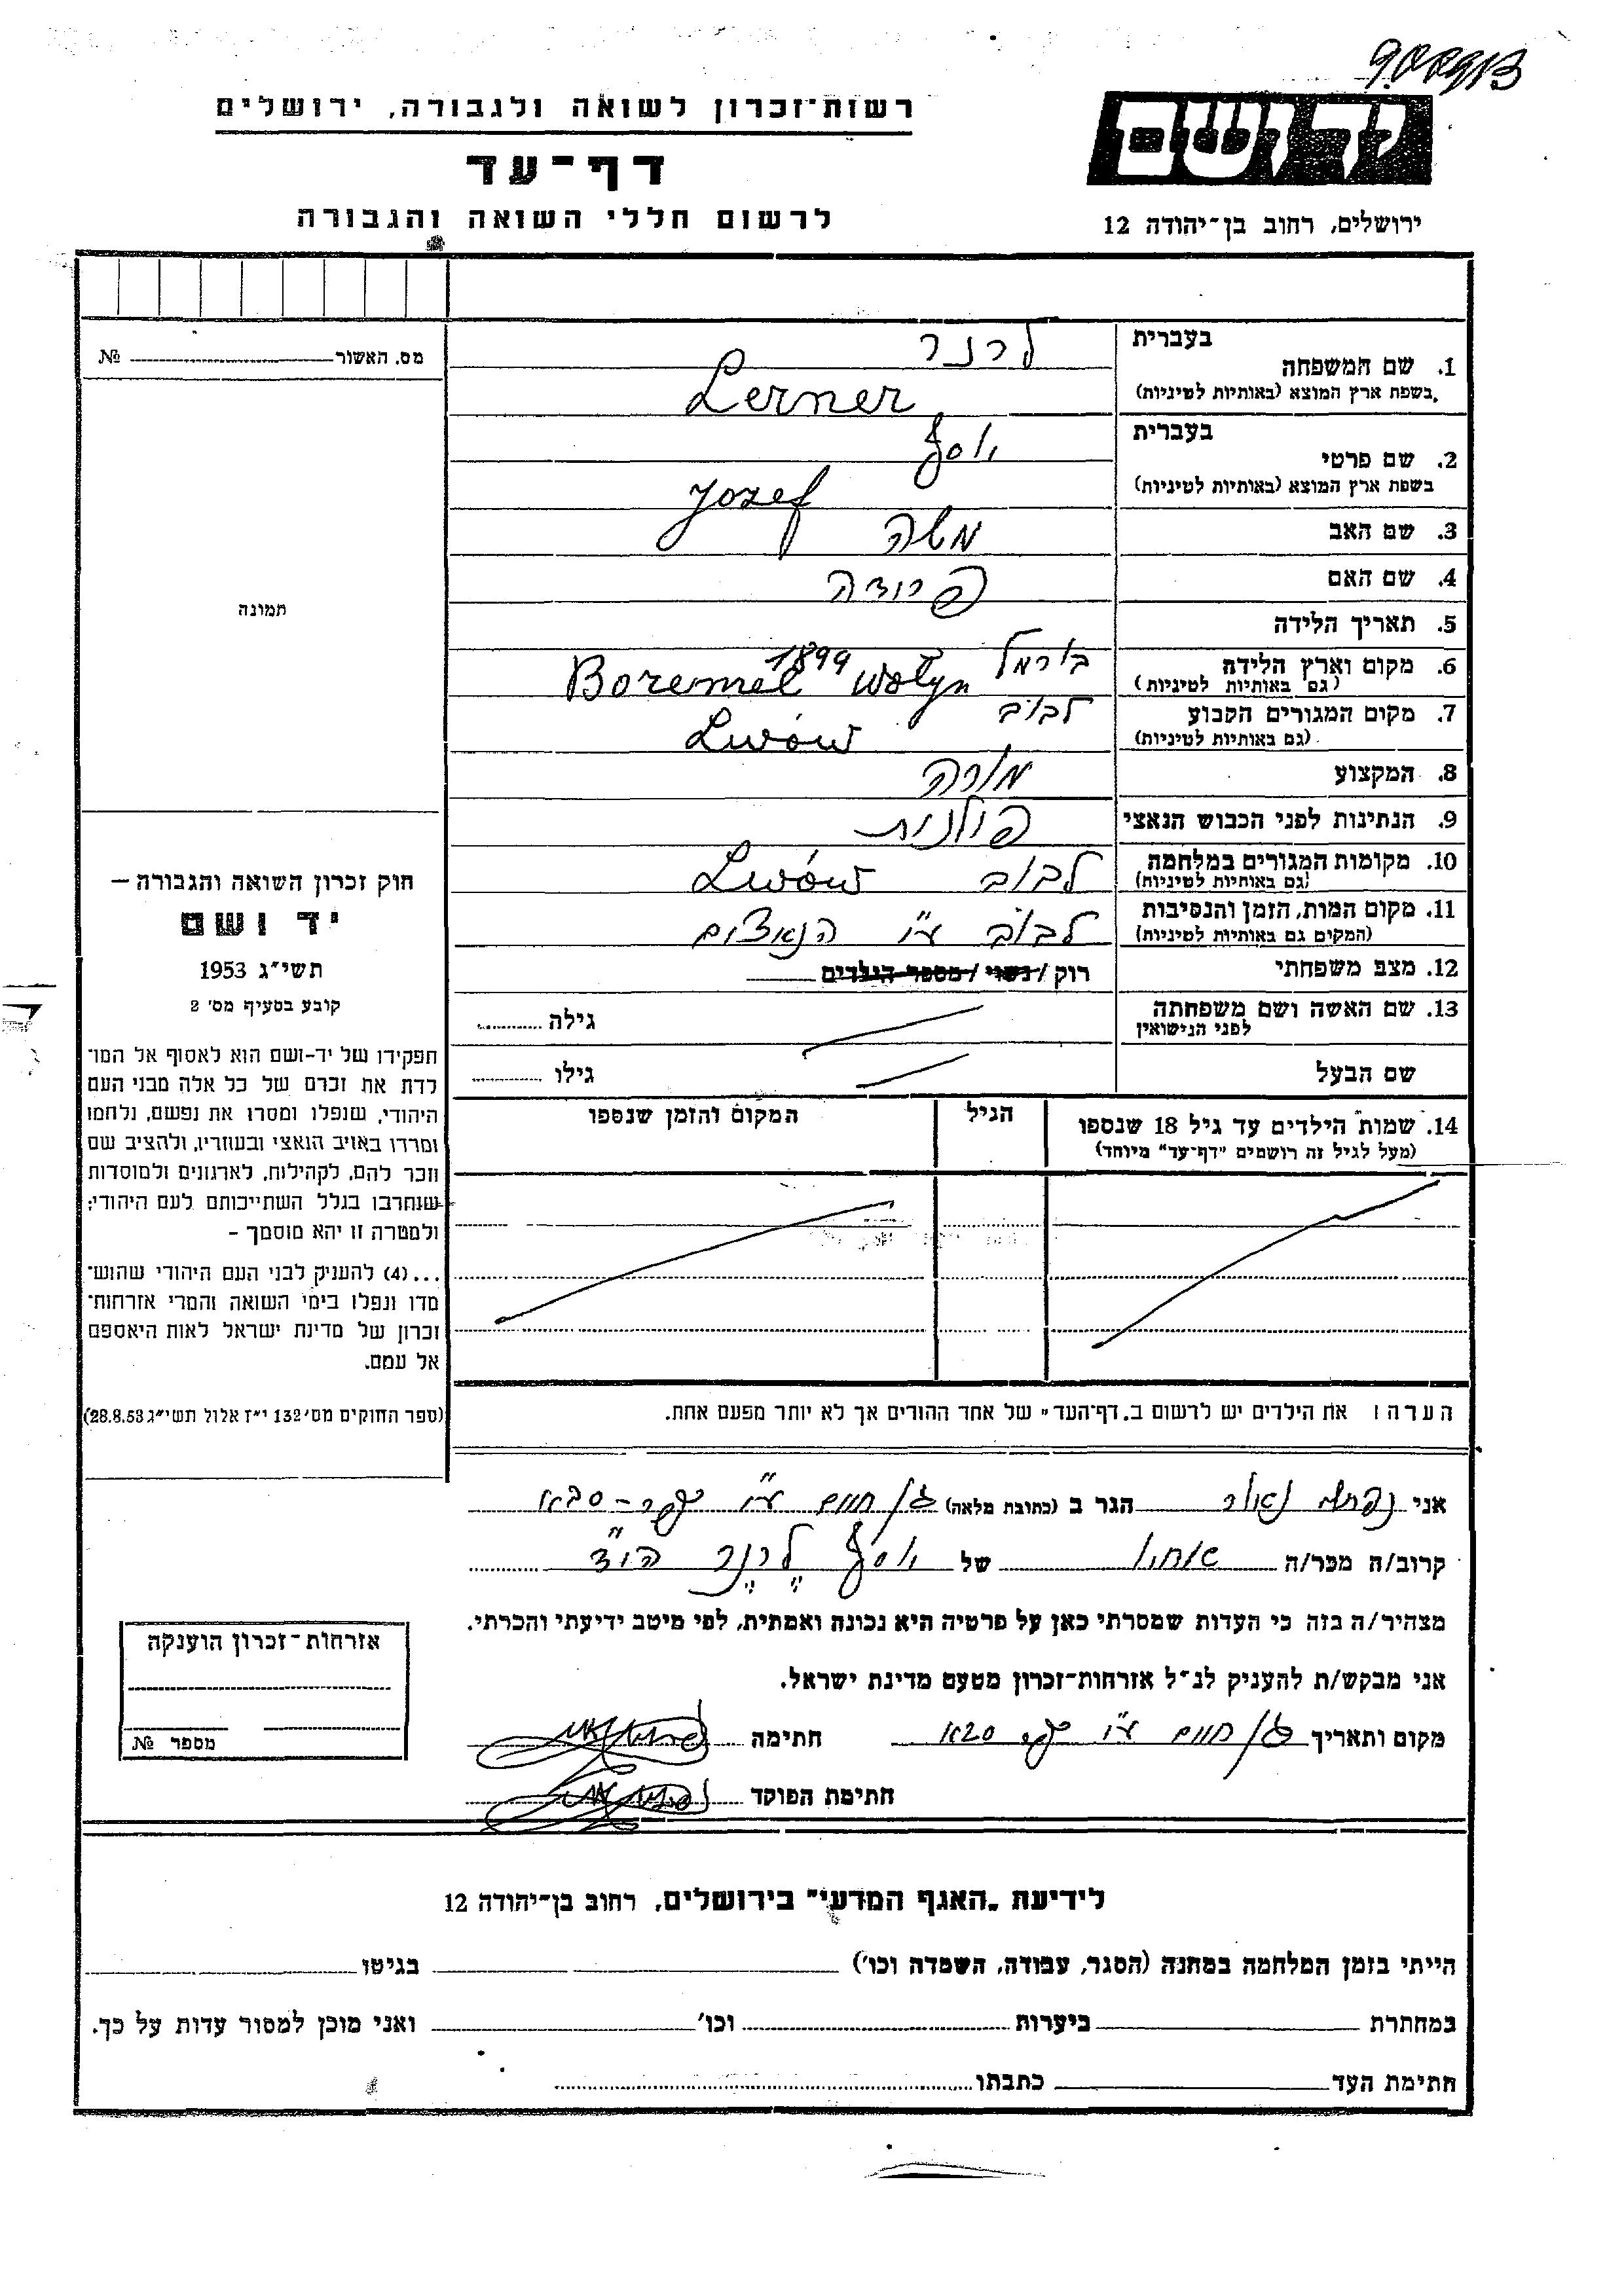 רשות־זכרון לשואה ולגבורה, ירושלים
דף־עד
לרשום חללי השואה והגבורה
יד ושם
ירושלים, רחוב בן־יהודה 12
מס. האשור №
תמונה
חוק זכרון השואה והגבורה –
יד ושם
תשי״ג 1953
קובע בסעיף מס׳ 2
תפקידו של יד-ושם הוא לאסוף אל המו־
לדת את זכרם של כל אלה מבני העם
היהודי, שנפלו ומסרו את נפשם, נלחמו
ומרדו באויב הנאצי ובעוזריו, ולהציב שם
וזכר להם, לקהילות, לארגונים ולמוסדות
שנחרבו בגלל השתייכותם לעם היהודי;
ולמטרה זו יהא מוסמך –
...(4) להעניק לבני העם היהודי שהוש־
מדו ונפלו בימי השואה והמרי אזרחות־
זכרון של מדינת ישראל לאות היאספם
אל עמם.
(ספר החוקים מס׳ 132 י״ז אלול תשי״ג 28.8.53)
בעברית לרנר
1. שם המשפחה
בשפת ארץ המוצא (באותיות לטיניות) Lerner
בעברית יוסף
2. שם פרטי
בשפת ארץ המוצא (באותיות לטיניות) Jozef
3. שם האב משה
4. שם האם
5. תאריך הלידה 1899
6. מקום וארץ הלידה בורמל
(גם באותיות לטיניות) Boremel Wołyn
7. מקום המגורים הקבוע לבוב
(גם באותיות לטיניות) Lwów
8. המקצוע מורה
9. הנתינות לפני הכבוש הנאצי פולנית
10. מקומות המגורים במלחמה לבוב Lwów
(גם באותיות לטיניות)
11. מקום המות, הזמן והנסיבות לבוב ע״י הנאצים
(המקום גם באותיות לטיניות)
12. מצב משפחתי רוק / נשוי / מספר הילדים
13. שם האשה ושם משפחתה גילה
לפני הנישואין
שם הבעל גילו
14. שמות הילדים עד גיל 18 שנספו הגיל המקום והזמן שנספו
(מעל לגיל זה רושמים ״דף־עד״ מיוחד)
הערה: את הילדים יש לרשום ב„דף־העד״ של אחד ההורים אך לא יותר מפעם אחת.
אני נפתלי הגר ב (כתובת מלאה) גן חיים ע״י כפר-סבא
קרוב/ה מכר/ה של יוסף לרנר הי״ד
מצהיר/ה בזה כי העדות שמסרתי כאן על פרטיה היא נכונה ואמתית, לפי מיטב ידיעתי והכרתי.
אני מבקש/ת להעניק לנ״ל אזרחות־זכרון מטעם מדינת ישראל.
מקום ותאריך גן חיים ע״י כפר סבא חתימה
חתימת הפוקד
אזרחות־זכרון הוענקה
מספר №
לידיעת „האגף המדעי״ בירושלים, רחוב בן־יהודה 12
הייתי בזמן המלחמה במחנה (הסגר, עבודה, השמדה וכו׳) בגיטו
במחתרת ביערות וכו׳ ואני מוכן למסור עדות על כך.
חתימת העד כתבתו